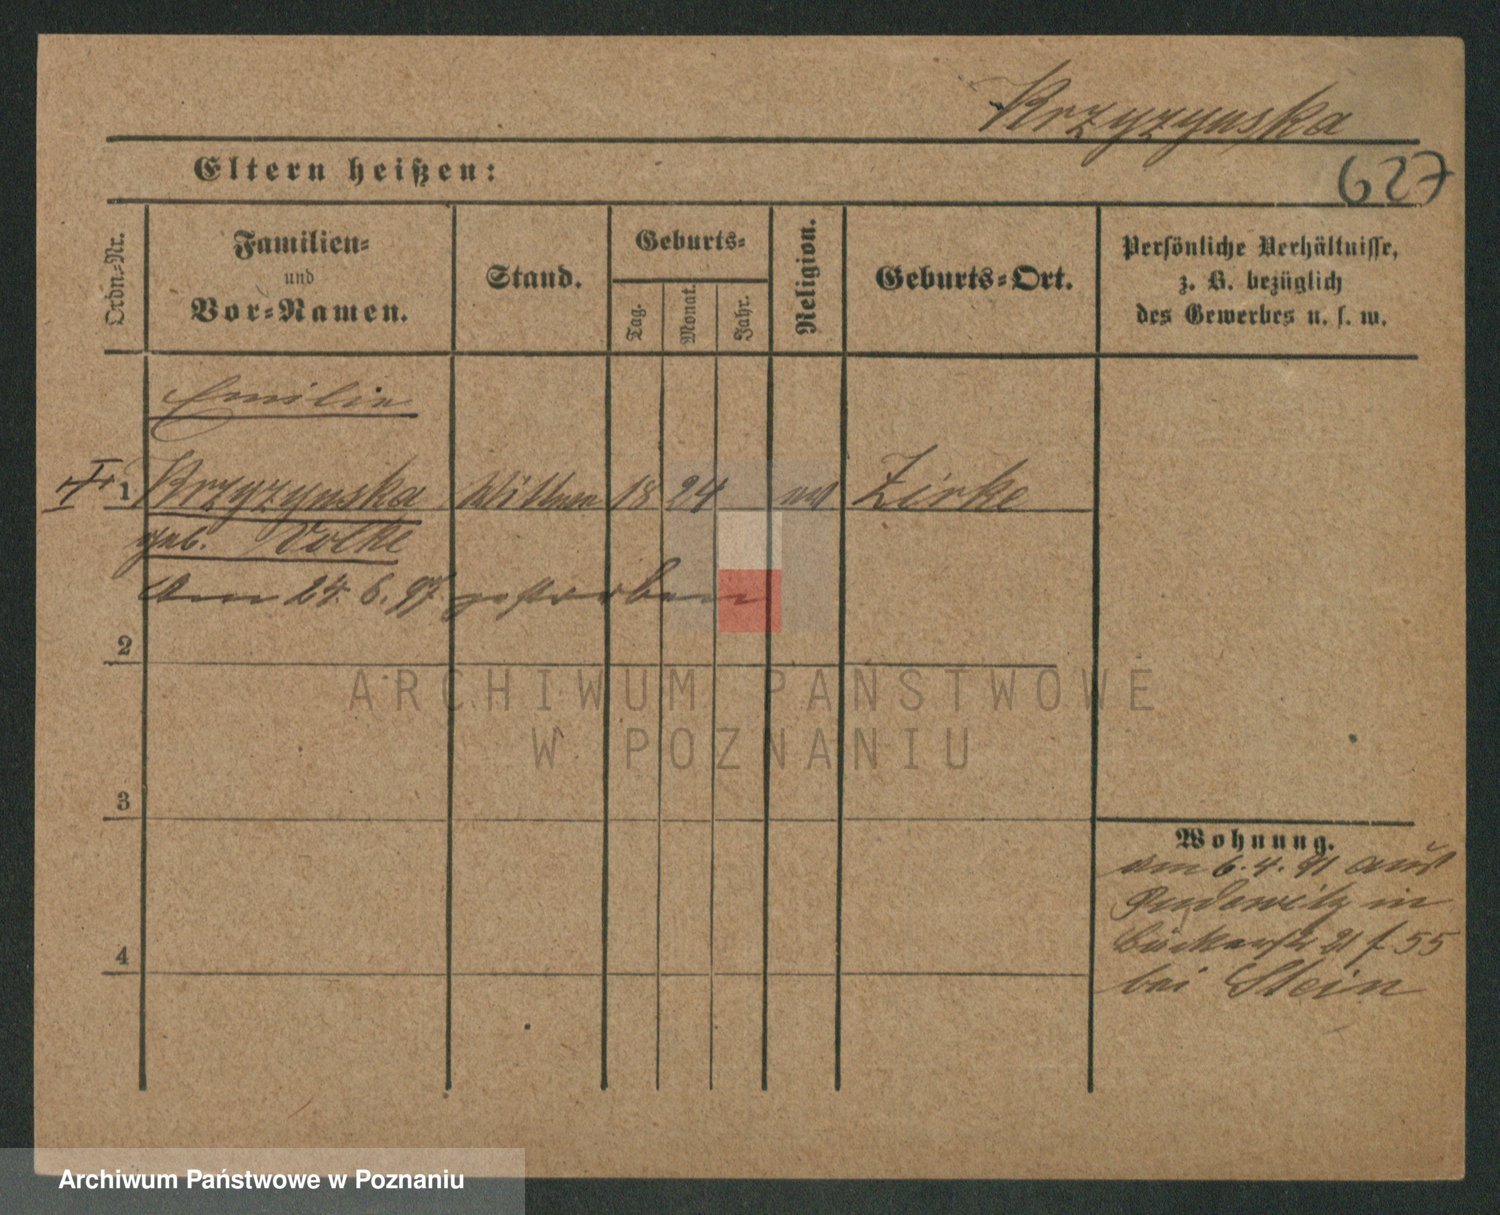 Krzyzynska
627
Eltern heißen:
Ordn.=Nr.
Familien=
und
Vor=Namen.
Stand.
Geburts=
Tag.
Monat.
Jahr.
Religion.
Geburts=Ort.
Persönliche Verhältnisse,
z. B. bezüglich
des Gewerbes u. s. w.
Emilie
1 Krzyzynska Wittwe 18 24 Zirke
geb. Volke
am 24. 6. 97 gestorben
2
3
4
Wohnung.
am 6. 4. 91 aus
Pudewitz in
21 55
bei Stein
ARCHIWUM PANSTWOWE
W POZNANIU
Archiwum Państwowe w Poznaniu